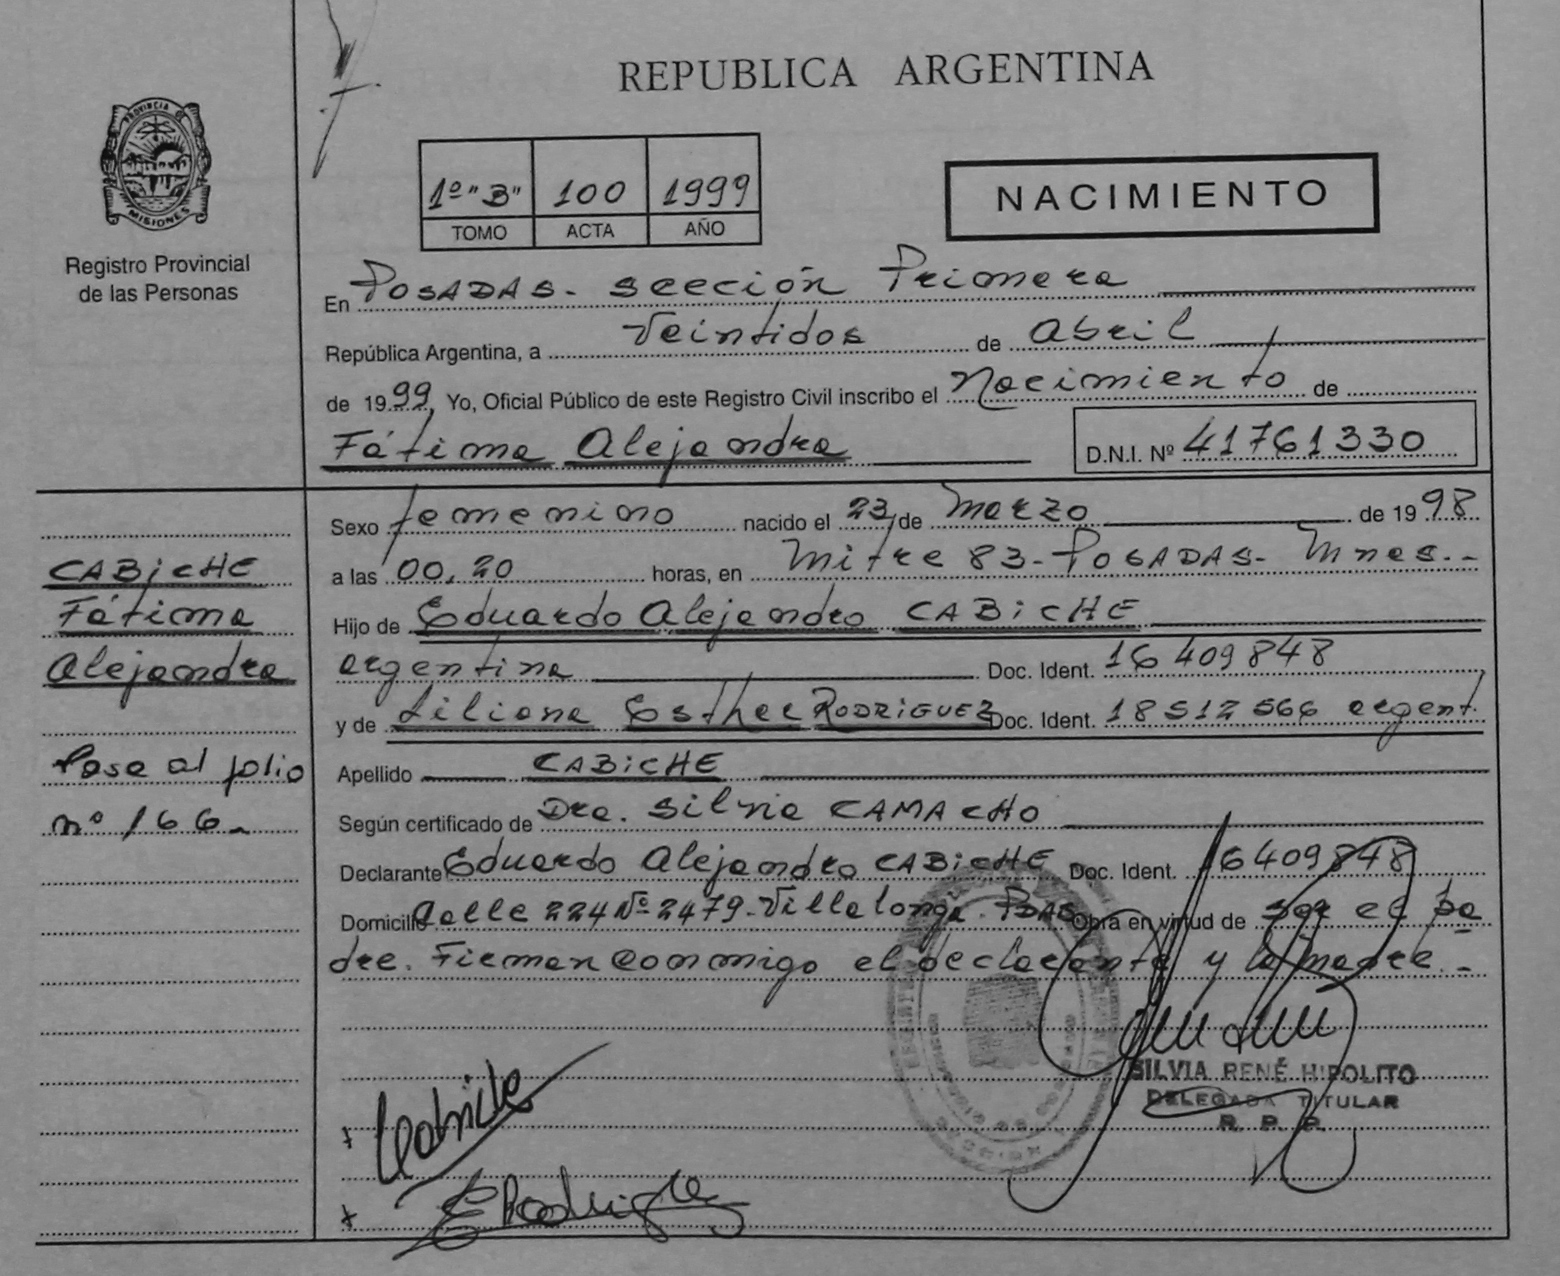 REPUBLICA ARGENTINA
PROVINCIA D
MISIONES
Registro Provincial
de las Personas
1º "B" 100 1999
TOMO ACTA AÑO
NACIMIENTO
En POSADAS - sección Primera
República Argentina, a Veintidos de abril
de 1999, Yo, Oficial Público de este Registro Civil inscribo el Nacimiento de
Fátima Alejandra D.N.I. Nº 41761330
Sexo femenino nacido el 23 de Marzo de 1998
a las 00,20 horas, en Mitre 83 - POSADAS - Mnes. -
Hijo de Eduardo Alejandro CABiCHE
argentina Doc. Ident. 16409848
y de Liliana Esther RODRiGUEZ Doc. Ident. 18512566 argent.
Apellido CABiCHE
Según certificado de Dra. Silvia CAMACHO
Declarante Eduardo Alejandro CABiCHE Doc. Ident. 16409848
Domicilio Calle 224 Nº 2479 - Villalonga - PDAS Obra en virtud de ser el pa
dre. Firman conmigo el declarante y la madre. -
CABiCHE
Fátima
Alejandra
Pasa al folio
nº 166 -
SILVIA RENÉ HIPOLITO
DELEGADA TITULAR
R. P. P.
Cabiche
E Rodriguez